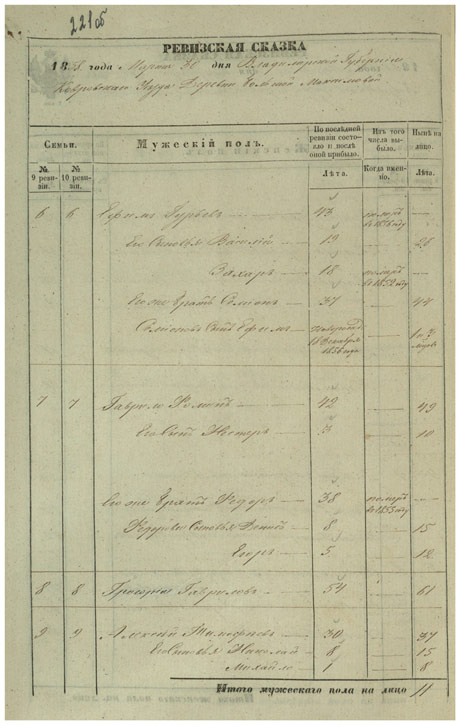 221 об
РЕВИЗСКАЯ СКАЗКА
18 года Марта дня Владимирской Губернии
Уезда Деревни
Семьи. Мужескій полъ. По последней ревизіи состояло и после оной прибыло. Изъ того числа выбыло. Ныне на лицо.
№ 9 ревизіи. № 10 ревизіи. Лѣта. Когда именно. Лѣта.
6 6 Ефимъ Гурьевъ 43 померъ въ 1856 году
Его Сыновья Василій 19
Захаръ 18 померъ въ 1852 году
Его же братъ Семіонъ 37 44
Семіоновъ Сынъ Ефимъ 1856 года
7 7 Гаврило 42 49
Его Сынъ Несторъ 3 10
Его же братъ Федоръ 38 померъ въ 1853 году
Федоровы Сыновья 8 15
Егоръ 5 12
8 8 Гавриловъ 54 61
9 9 Алексей Тимофеевъ 30 37
Его Сыновья Николай 8 15
Михайло 1 8
Итого мужескаго пола на лицо 11